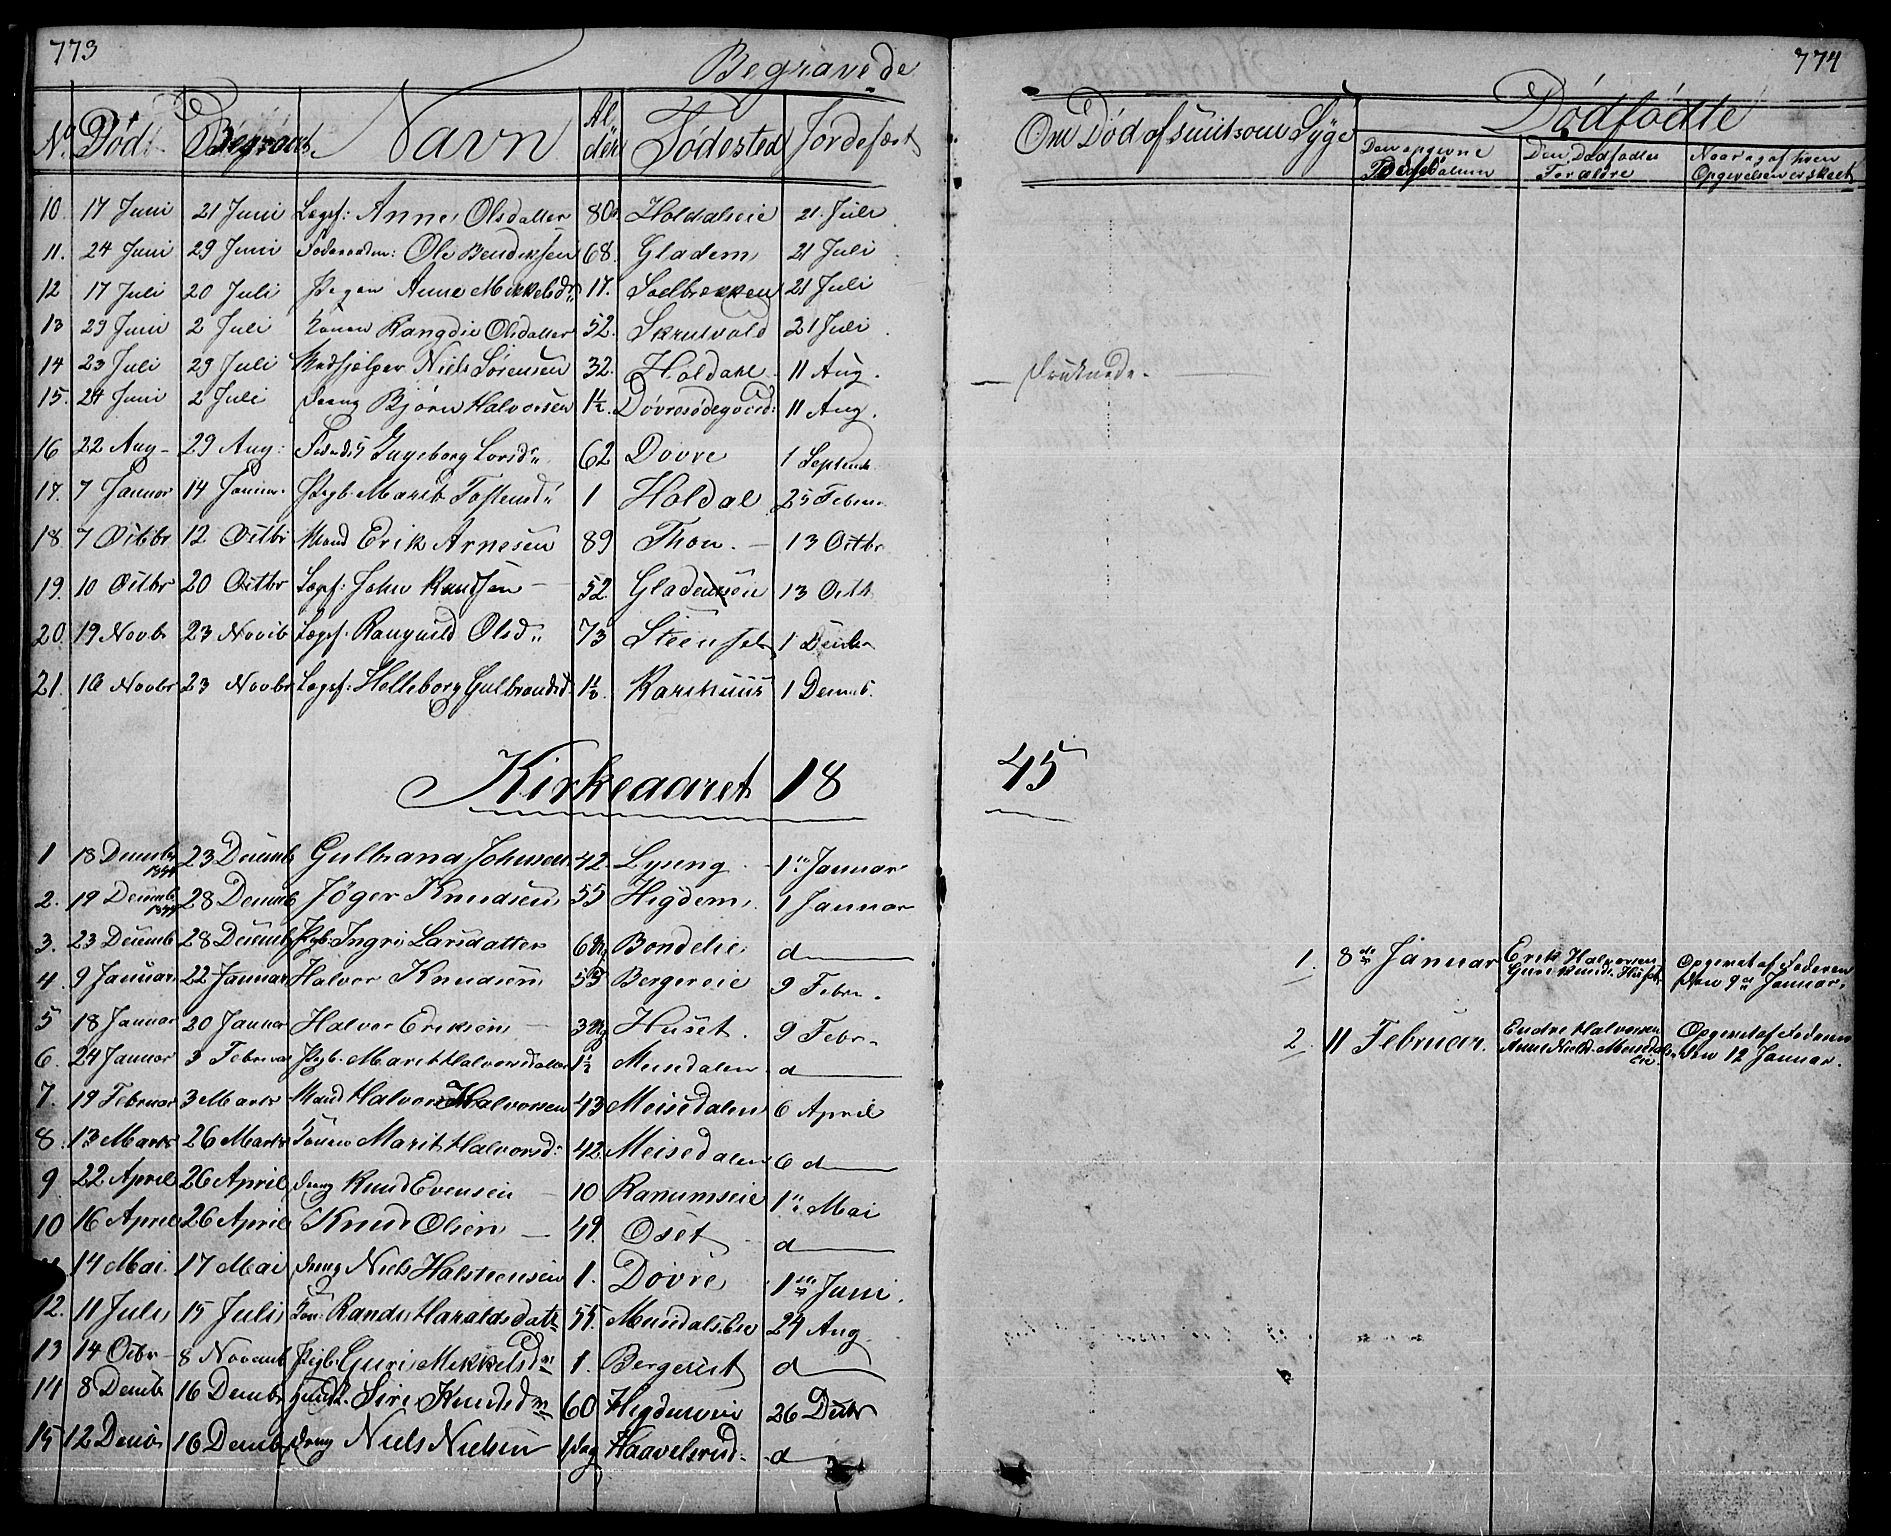 773
Begravede
774
No. Død Begravet. Navn Alderen Fødested Jordefæst
Om Død af smitsom Syge
Dødfødte
Den opgivne Fødselsdatum
Den Dødfødtes Forældre
Naar og af hvem Opgivelsen er skeet
10. 17 Juni 21 Juni Lægsf: Anne Olsdatter 80 Holdalseie 21 Juli
11. 24 Juni 29 Juni Ole Bendiksen 68. Gladem 21 Juli
12 17 Juli 20 Juli Pigen Anne Mikkelsdr 17. Solbrekken 21 Juli
13 29 Juni 2 Juli Konen Rangdie Olsdatter 52. Skrutvold 21 Juli
14 23 Juli 29 Juli Medhjelper Niels Sørensen 32. Holdahl 11 Aug. — druknede. —
15. 24 Juni 2 Juli Dreng Bjørn Halvorsen 1½ Dovresødegaard: 11 Aug.
16 22 Aug 29 Aug: Ingeborg Larsd: 62 Dovre 1 Septemb
17. 7 Januar 14 Januar Pigb. Marit Tostensd: 1 Holdal 25 Febru
18. 7 Octbr 12 Octbr Mand Erik Arnesen 89 Thon. — 13 Octbr
19. 10 Octbr 20 Octbr Lægsf: John Knudsen — 52. 13 Octb
20. 19 Novb 23 Novb Lægsf. Rangnild Olsd: 73 Steenset 1 Decbr
21. 16 Novbr 23 Novbr Lægsf: Helleborg Gulbrandsd. Karshuus 1 Decemb.
Kirkeaaret 1845
1 18 Decembr 1844 23 Decemb Gulbrand Johnsen 42. Lyseng. 1ste Januar
2. 19 Decemb 1844 28 Decemb Jøger Knudsen 55 Hegdem 1 Januar
3. 23 Decemb 28 Decemb Pigb. Ingri Larsdatter 6 Bondelie d
1. 8de Januar Erik Halvorsen Guri Knudsd. Huset Opgivet af Faderen den 9de Januar.
4. 9 Januar 22 Januar Halvor Knudsen 55 Bergereie 9 Febr.
5 18 Januar 20 Januar Halvor Eriksen — 3 Huset. 9 Febr.
2. 11 Februar. Endre Halvorsen Anne Nielsd. Meisdalseie. Opgivet af Faderen den 12 Januar.
6. 24 Januar 3 Februar Pigb. Marit Halvorsdatter 1½ Meisdalen d
7. 19 Februar 3 Marts Mand Halvor Halvorsen 43 Meisedalen 6 April
8. 13 Marts 26 Marts Konen Marit Halvorsd. 42. Meisedalen 6 d
9 22 April 26 April Dreng Knud Evensen — 10 Ranumseie 1ste Mai
10 16 April 26 April Knud Olsen — 49. Oset d
14 Mai. 17 Mai Dreng Niels Halsteensen 1. Dovre 1ste Juni.
12. 11 Juli 15 Juli Kone Randi Haraldsdatr 55. Meisdalseie 24 Aug
13 14 Octbr — 8 Novemb Pigb. Guri Mikkelsdr 1. Bergeseet d
14 8 Decemb 16 Decemb Siri Knudsdr 60 Hegdemseie 26 Decbr
15 12 Decbr 16 Decembr Dreng Niels Nielsen 1 dag Haavelsrud. d